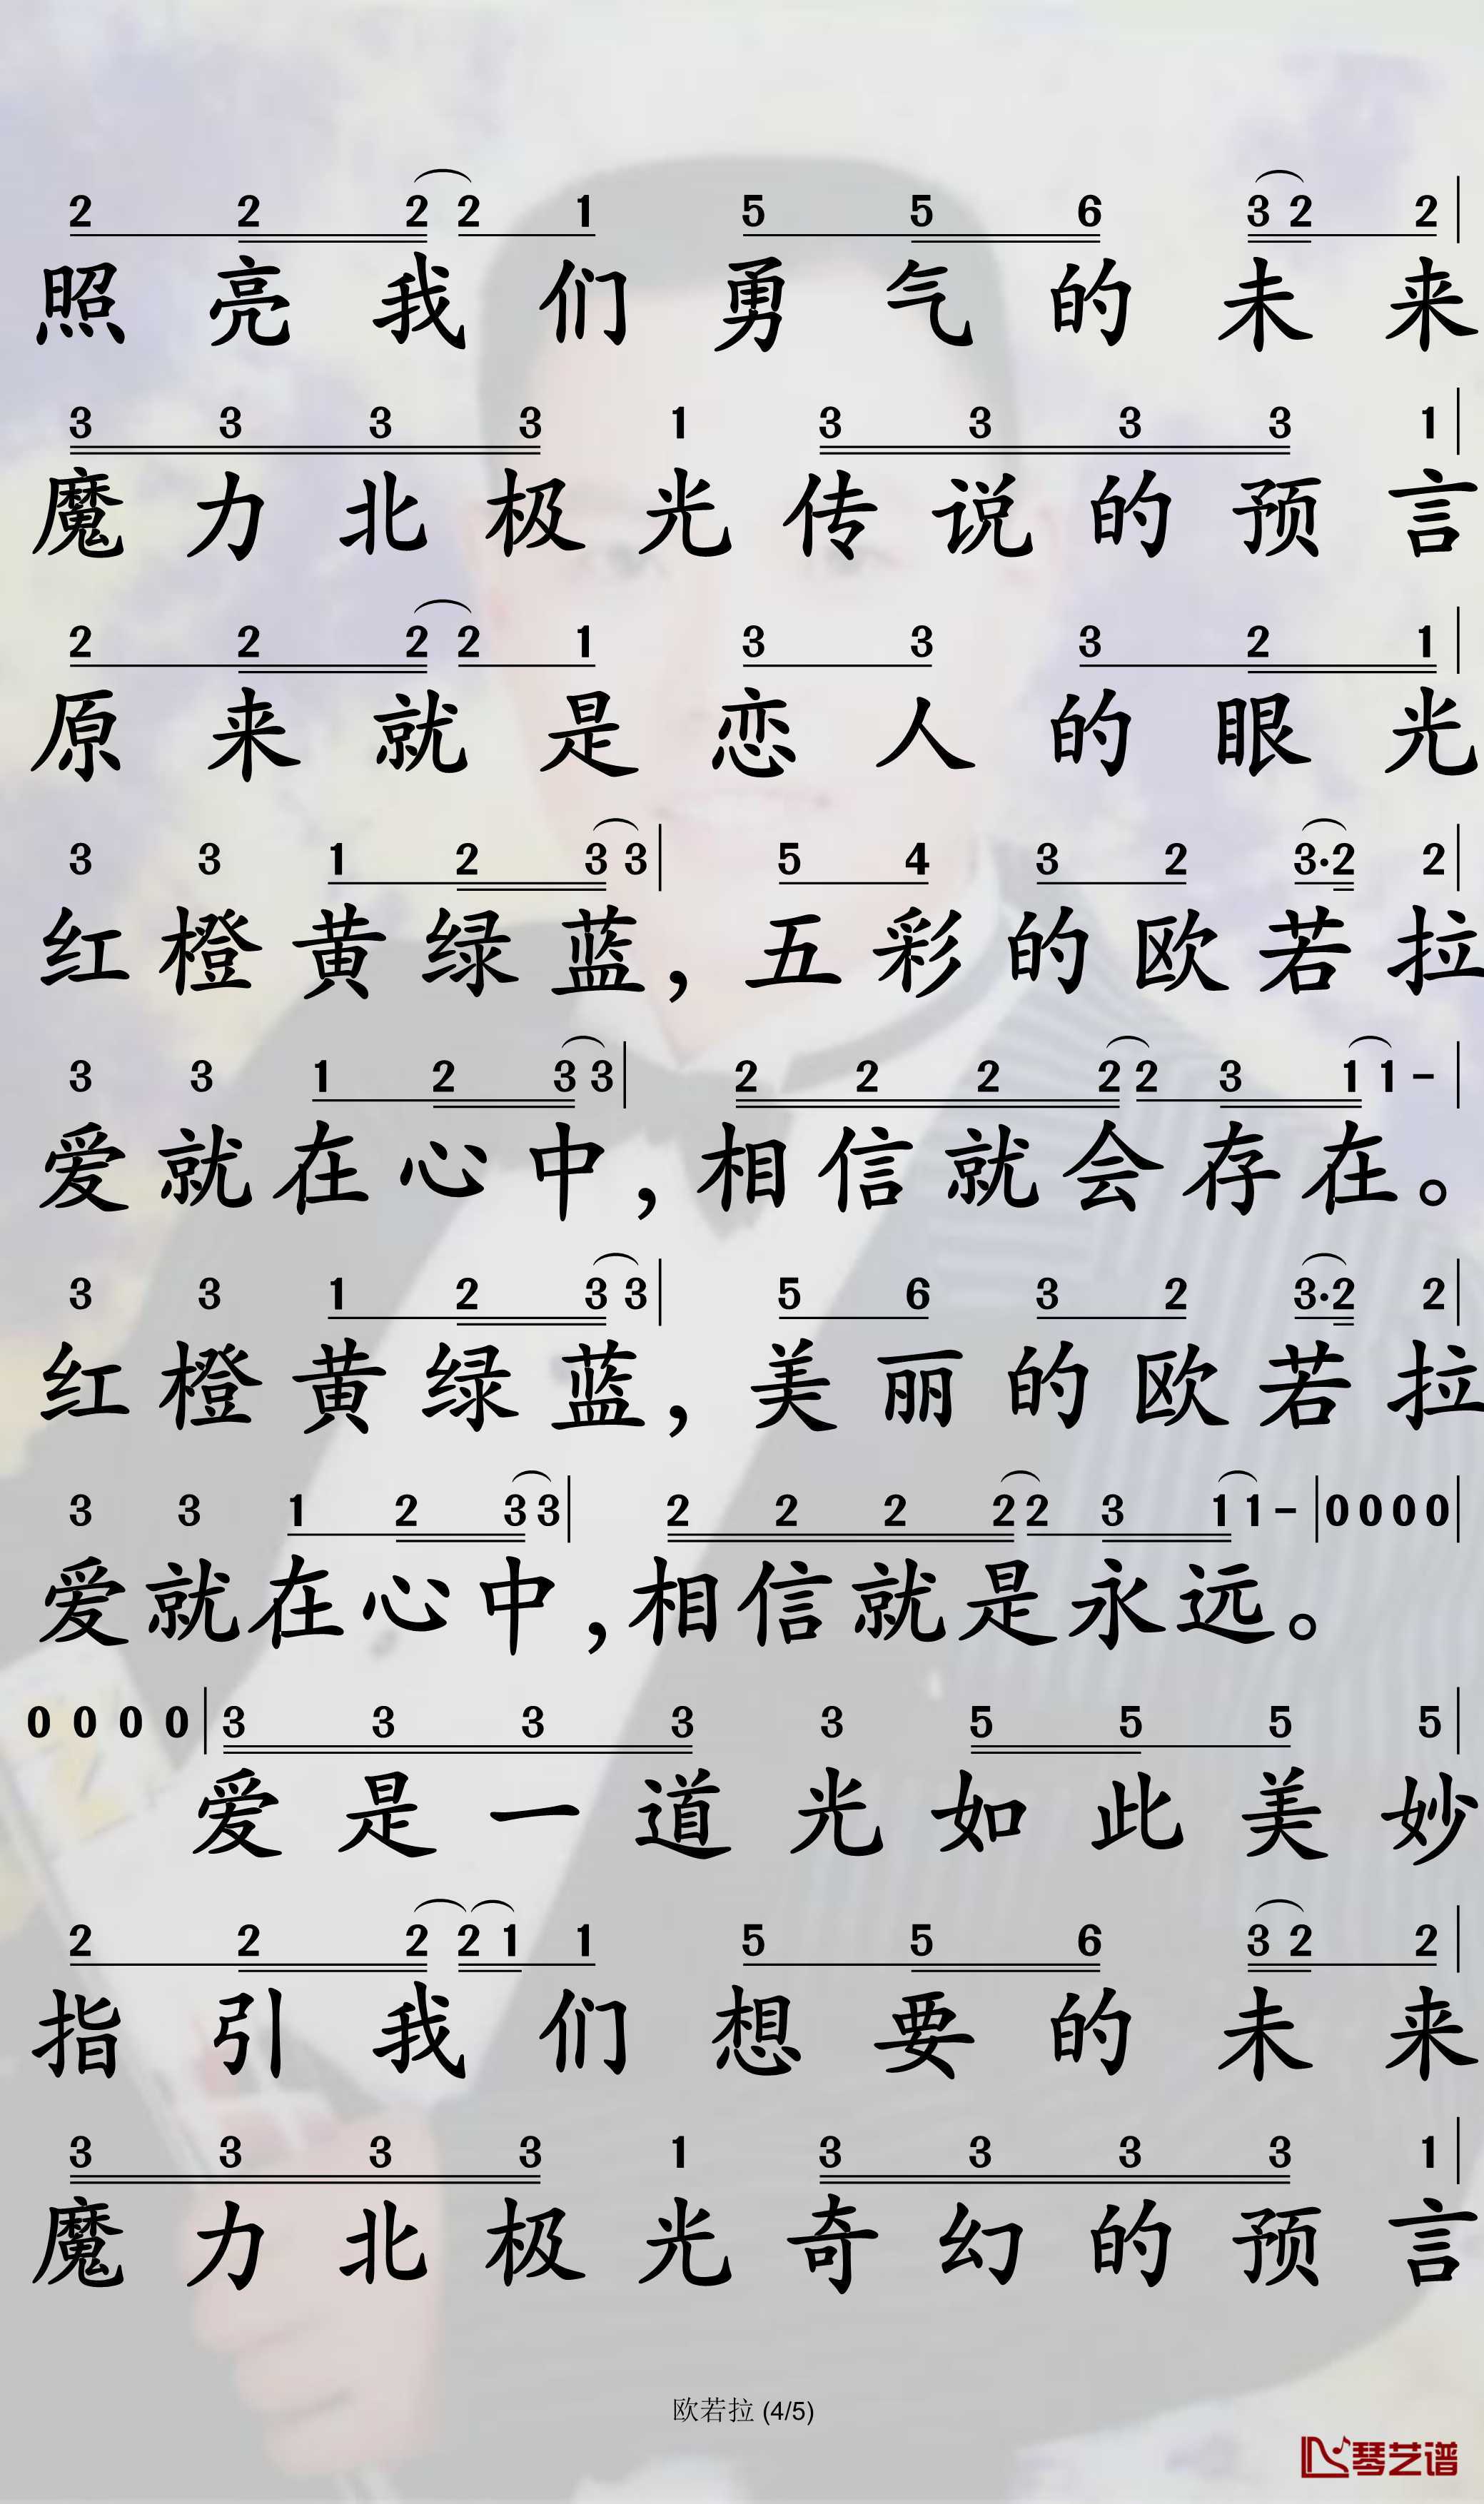 2 2 2 2 1 5 5 6 3 2 2
照亮我们勇气的未来
3 3 3 3 1 3 3 3 3 1
魔力北极光传说的预言
2 2 2 2 1 3 3 3 2 1
原来就是恋人的眼光
3 3 1 2 3 3 5 4 3 2 3·2 2
红橙黄绿蓝，五彩的欧若拉
3 3 1 2 3 3 2 2 2 2 2 3 1 1 -
爱就在心中，相信就会存在。
3 3 1 2 3 3 5 6 3 2 3·2 2
红橙黄绿蓝，美丽的欧若拉
3 3 1 2 3 3 2 2 2 2 2 3 1 1 - 0 0 0 0
爱就在心中，相信就是永远。
0 0 0 0 3 3 3 3 3 5 5 5 5
爱是一道光如此美妙
2 2 2 2 1 1 5 5 6 3 2 2
指引我们想要的未来
3 3 3 3 1 3 3 3 3 1
魔力北极光奇幻的预言
欧若拉 (4/5)
琴艺谱